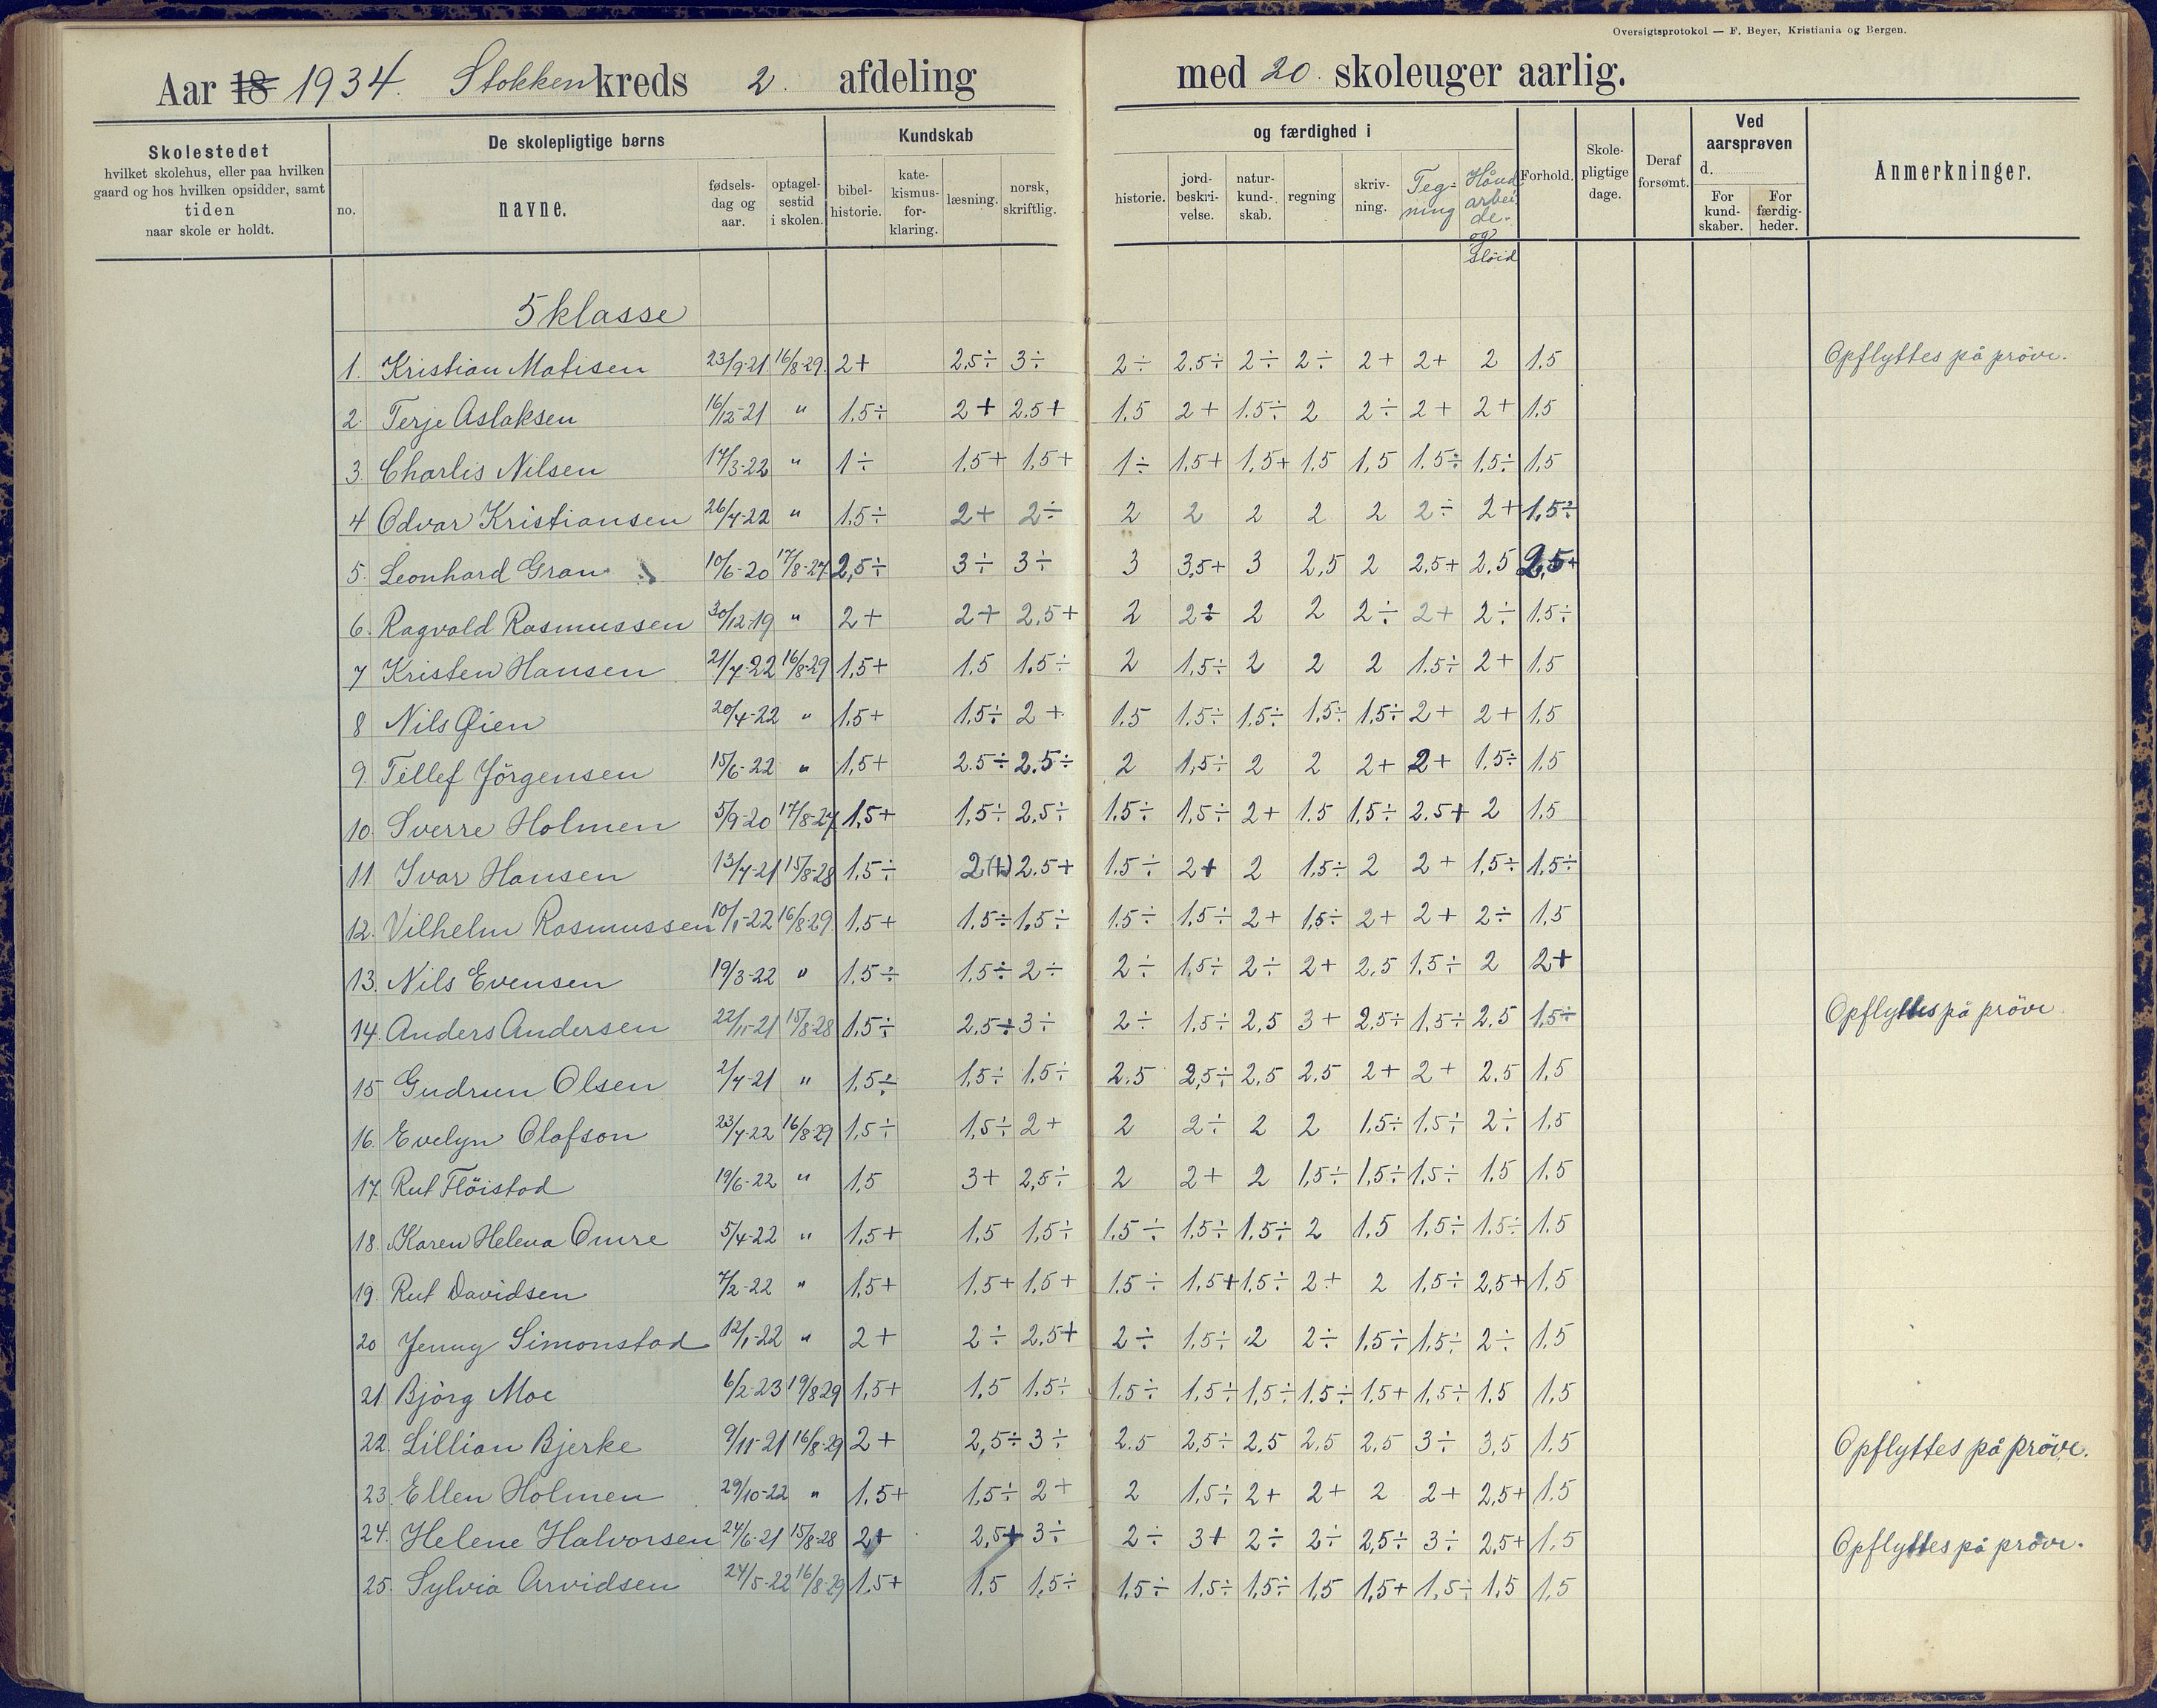 Oversigtsprotokol — F. Beyer, Kristiania og Bergen.
Aar 18 1934. Stokken kreds 2. afdeling med 20. skoleuger aarlig.
Skolestedet hvilket skolehus, eller paa hvilken gaard og hos hvilken opsidder, samt tiden naar skole er holdt.
De skolepligtige børns
no. navne. fødsels-dag og aar. optagel-sestid i skolen.
Kundskab og færdighed i
bibel-historie. kate-kismus-for-klaring. læsning. norsk, skriftlig. historie. jord-beskri-velse. natur-kund-skab. regning skriv-ning. Teg-ning Håndarbei-de- og Sløid
Forhold. Skole-pligtige dage. Deraf forsømt. Ved aarsprøven d. For kund-skaber. For færdig-heder. Anmerkninger.
5 klasse
1. Kristian Matisen 23/9-21 16/8-29. 2+ 2.5÷ 3÷ 2÷ 2.5÷ 2÷ 2÷ 2+ 2+ 2 1.5 Opflyttes på pröve.
2. Terje Aslaksen 16/12-21 " 1.5÷ 2+ 2.5+ 1.5 2+ 1.5÷ 2 2÷ 2+ 2+ 1.5
3. Charlis Nilsen 17/3-22 " 1÷ 1.5+ 1,5+ 1÷ 1,5+ 1,5+ 1.5 1,5 1.5÷ 1,5÷ 1,5
4 Odvar Kristiansen 26/4-22 " 1.5÷ 2+ 2÷ 2 2 2 2 2 2÷ 2+ 1,5÷
5. Leonhard Gran 10/6-20 17/8-27 2,5÷ 3÷ 3÷ 3 3,5+ 3 2,5 2 2.5+ 2.5 2,5+
6. Ragvald Rasmussen 30/12-19 " 2+ 2+ 2.5+ 2 2÷ 2 2 2÷ 2+ 2÷ 1.5÷
7 Kristen Hansen 21/7-22 16/8-29 1,5+ 1.5 1.5÷ 2 1,5÷ 2 2 2 1.5÷ 2+ 1,5
8 Nils Øien 20/4-22 " 1,5+ 1,5÷ 2+ 1.5 1.5÷ 1,5÷ 1,5÷ 1,5÷ 2+ 2+ 1,5
9. Tellef Jörgensen 15/6-22 " 1,5+ 2.5÷ 2.5÷ 2 1,5÷ 2 2 2+ 2+ 1,5÷ 1.5
10. Sverre Holmen 5/9-20 17/8-27 1,5+ 1,5÷ 2,5÷ 1.5÷ 1,5÷ 2+ 1.5 1,5÷ 2.5+ 2 1,5
11 Ivar Hansen 13/7-21 15/8-28 1,5÷ 2(+) 2.5+ 1.5÷ 2+ 2 1,5÷ 2 2+ 1,5÷ 1,5÷
12. Vilhelm Rasmussen 10/1-22 16/8-29. 1,5+ 1.5÷ 1,5÷ 1.5÷ 1,5÷ 2+ 1,5÷ 2+ 2+ 2÷ 1,5
13. Nils Evensen 19/3-22 " 1,5÷ 1,5÷ 2÷ 2÷ 1,5÷ 2÷ 2+ 2,5 1,5÷ 2 2+
14. Anders Andersen 22/11-21 15/8-28 1,5÷ 2,5÷ 3÷ 2÷ 1,5÷ 2,5 3+ 2,5÷ 1,5÷ 2,5 1,5÷ Opflyttes på pröve.
15 Gudrun Olsen 2/4-21 " 1,5÷ 1,5÷ 1,5÷ 2.5 2,5÷ 2,5 2.5 2+ 2+ 2.5 1,5
16. Evelyn Olafson 23/4-22 16/8-29 1,5÷ 1,5÷ 2+ 2 2÷ 2 2 1.5÷ 1,5÷ 2÷ 1,5
17. Rut Flöistad 19/6-22 " 1,5 3+ 2,5÷ 2 2+ 2 1,5÷ 1,5÷ 1,5÷ 1.5 1,5
18. Karen Helena Omre 5/4-22 " 1,5+ 1,5 1,5÷ 1.5÷ 1,5÷ 1,5÷ 2 1.5 1,5÷ 1.5÷ 1.5
19. Rut Davidsen 7/2-22 " 1,5+ 1,5+ 1,5+ 1.5÷ 1,5+ 1,5÷ 2+ 2 1,5÷ 2,5+ 1,5
20 Jenny Simonstad 12/1-22 " 2+ 2÷ 2,5+ 2÷ 1,5÷ 2 2÷ 1,5÷ 1,5÷ 2÷ 1,5
21 Bjørg Moe 6/2-23 19/8-29 1,5+ 1.5 1.5÷ 1.5÷ 1,5÷ 1,5÷ 1.5÷ 1.5+ 1,5÷ 1.5 1,5
22. Lillian Bjerke 9/11-21 16/8-29 2+ 2,5÷ 3÷ 2.5 2,5÷ 2,5 2,5 2,5 3÷ 3,5 1,5 Opflyttes på pröve.
23. Ellen Holmen 29/10-22 " 1.5+ 1.5÷ 2+ 2 1,5÷ 2+ 2+ 2 2+ 2,5+ 1.5
24. Helene Halvorsen 24/6-21 15/8-28 2+ 2,5+ 3÷ 2÷ 3+ 2÷ 2÷ 2,5÷ 3÷ 2,5+ 1,5 Opflyttes på pröve.
25. Sylvia Arvidsen 24/5-22 16/8-29 1,5+ 1,5 1,5÷ 1.5÷ 1.5÷ 1,5÷ 1,5 1,5+ 1,5÷ 1,5 1,5